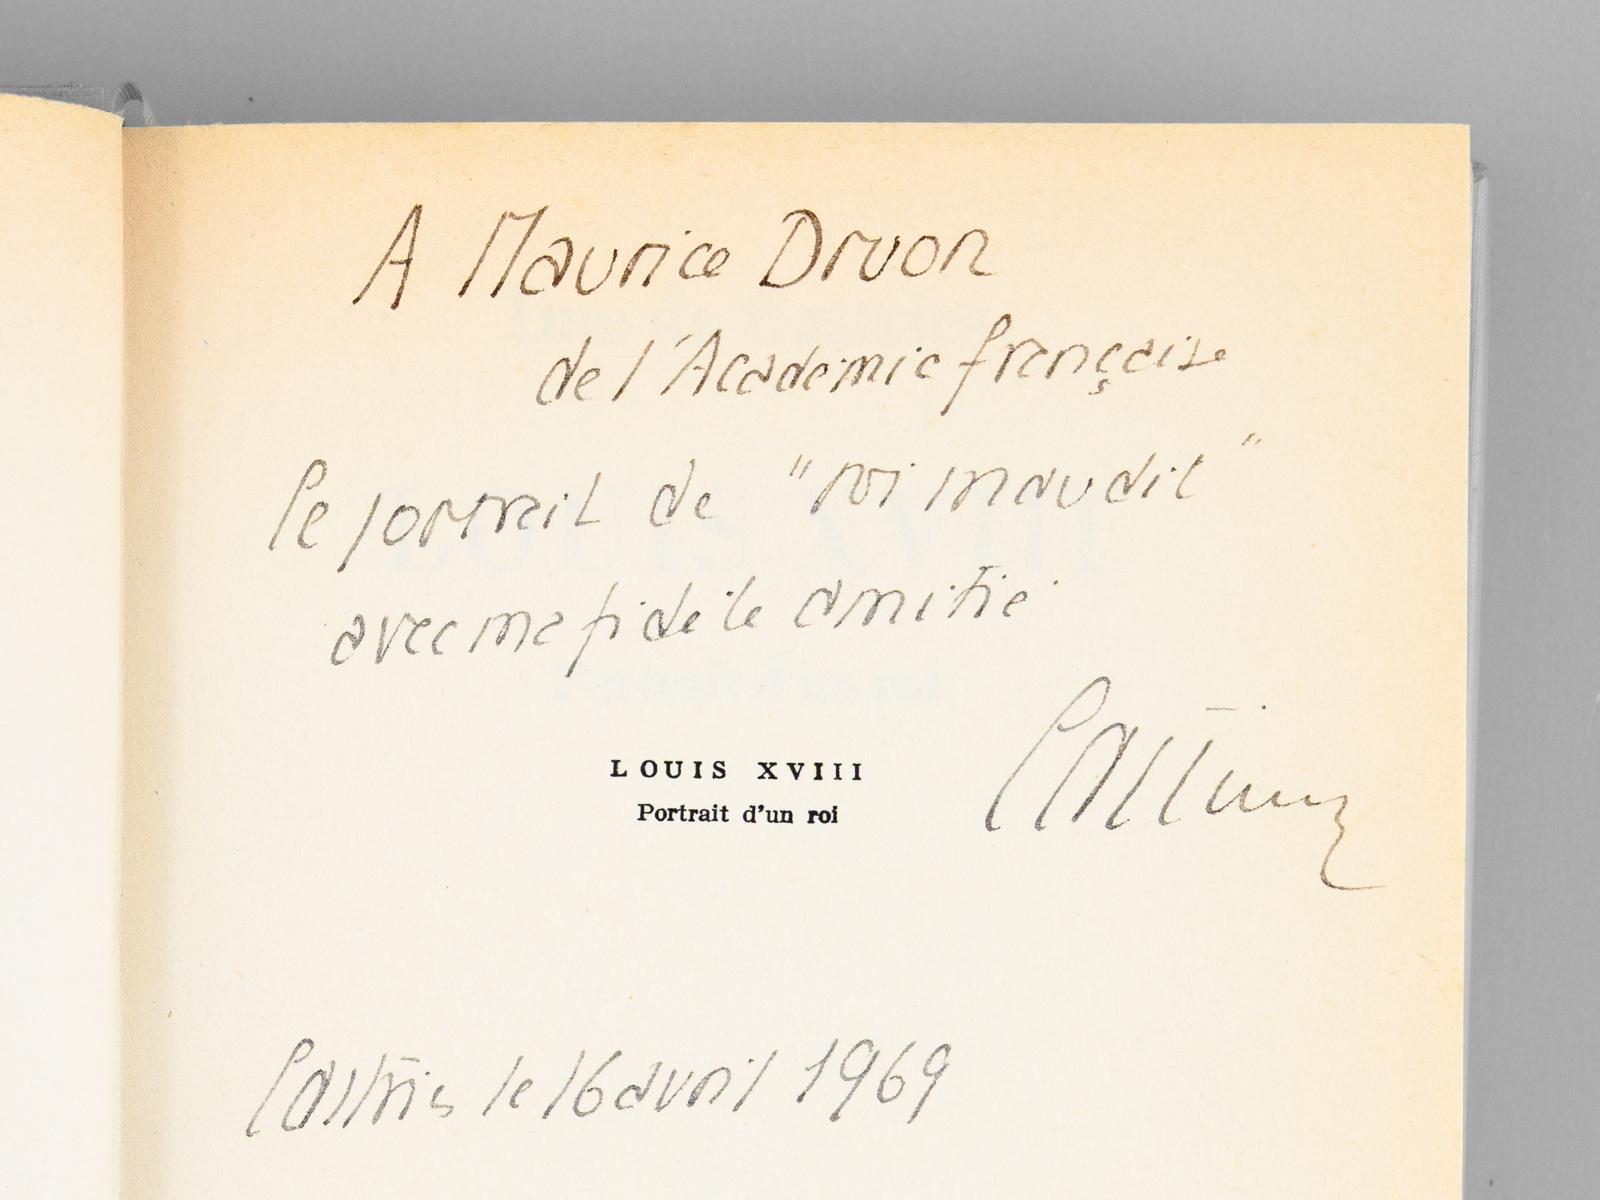 A Maurice Druon
de l'Académie française
le portrait de "roi maudit"
avec ma fidèle amitié
Castries
LOUIS XVIII
Portrait d'un roi
Castries le 16 avril 1969